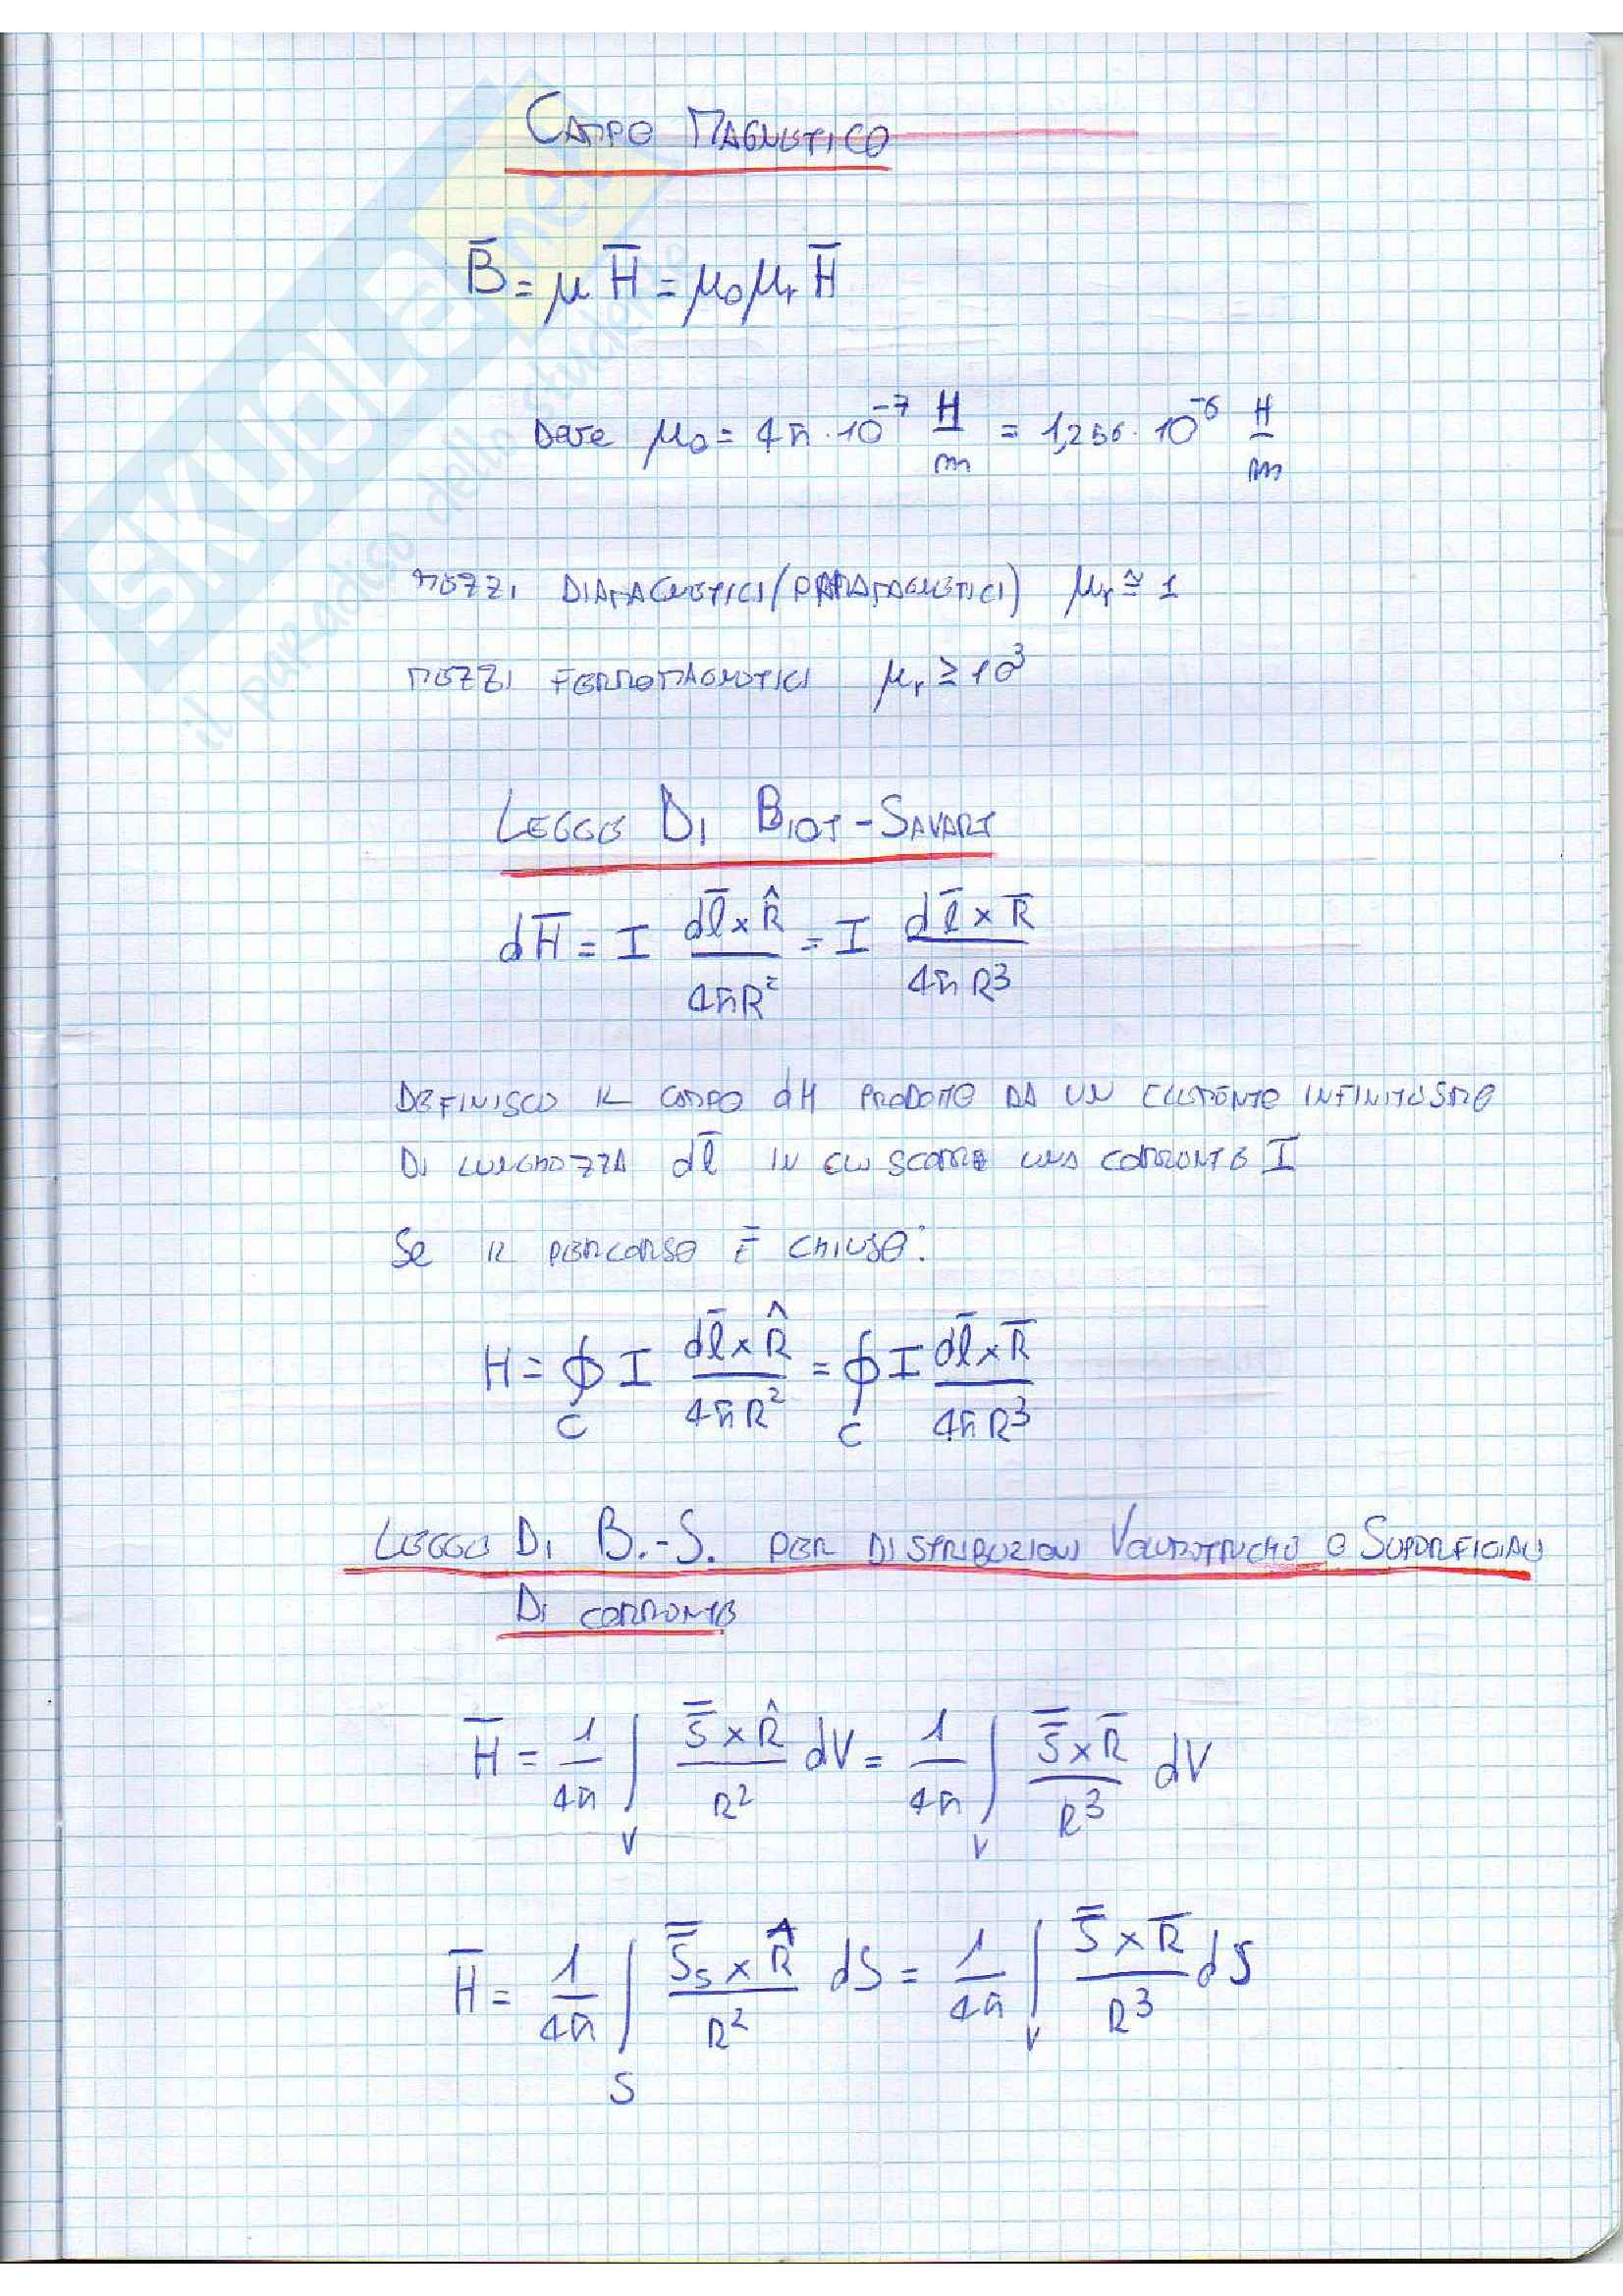 CAMPO MAGNETICO
B̄ = μ H̄ = μ₀μᵣ H̄
DOVE μ₀ = 4π·10⁻⁷ H/m = 1,256·10⁻⁶ H/m
MEZZI DIAMAGNETICI/(PARAMAGNETICI) μᵣ ≅ 1
MEZZI FERROMAGNETICI μᵣ ≥ 10³
LEGGE DI BIOT-SAVART
dH̄ = I (dl̄ × R̂)/(4πR²) = I (dl̄ × R̄)/(4πR³)
DEFINISCO IL CAMPO dH PRODOTTO DA UN ELEMENTO INFINITESIMO
DI LUNGHEZZA dl̄ IN CUI SCORRE UNA CORRENTE I
SE IL PERCORSO È CHIUSO:
H = ∮_C I (dl̄ × R̂)/(4πR²) = ∮_C I (dl̄ × R̄)/(4πR³)
LEGGE DI B.-S. PER DISTRIBUZIONI VOLUMETRICHE O SUPERFICIALI
DI CORRENTE
H̄ = 1/4π ∫_V (J̄ × R̂)/R² dV = 1/4π ∫_V (J̄ × R̄)/R³ dV
H̄ = 1/4π ∫_S (J̄ₛ × R̂)/R² dS = 1/4π ∫_V (J̄ × R̄)/R³ dS
SKUOLA.net
il paradiso dello studente